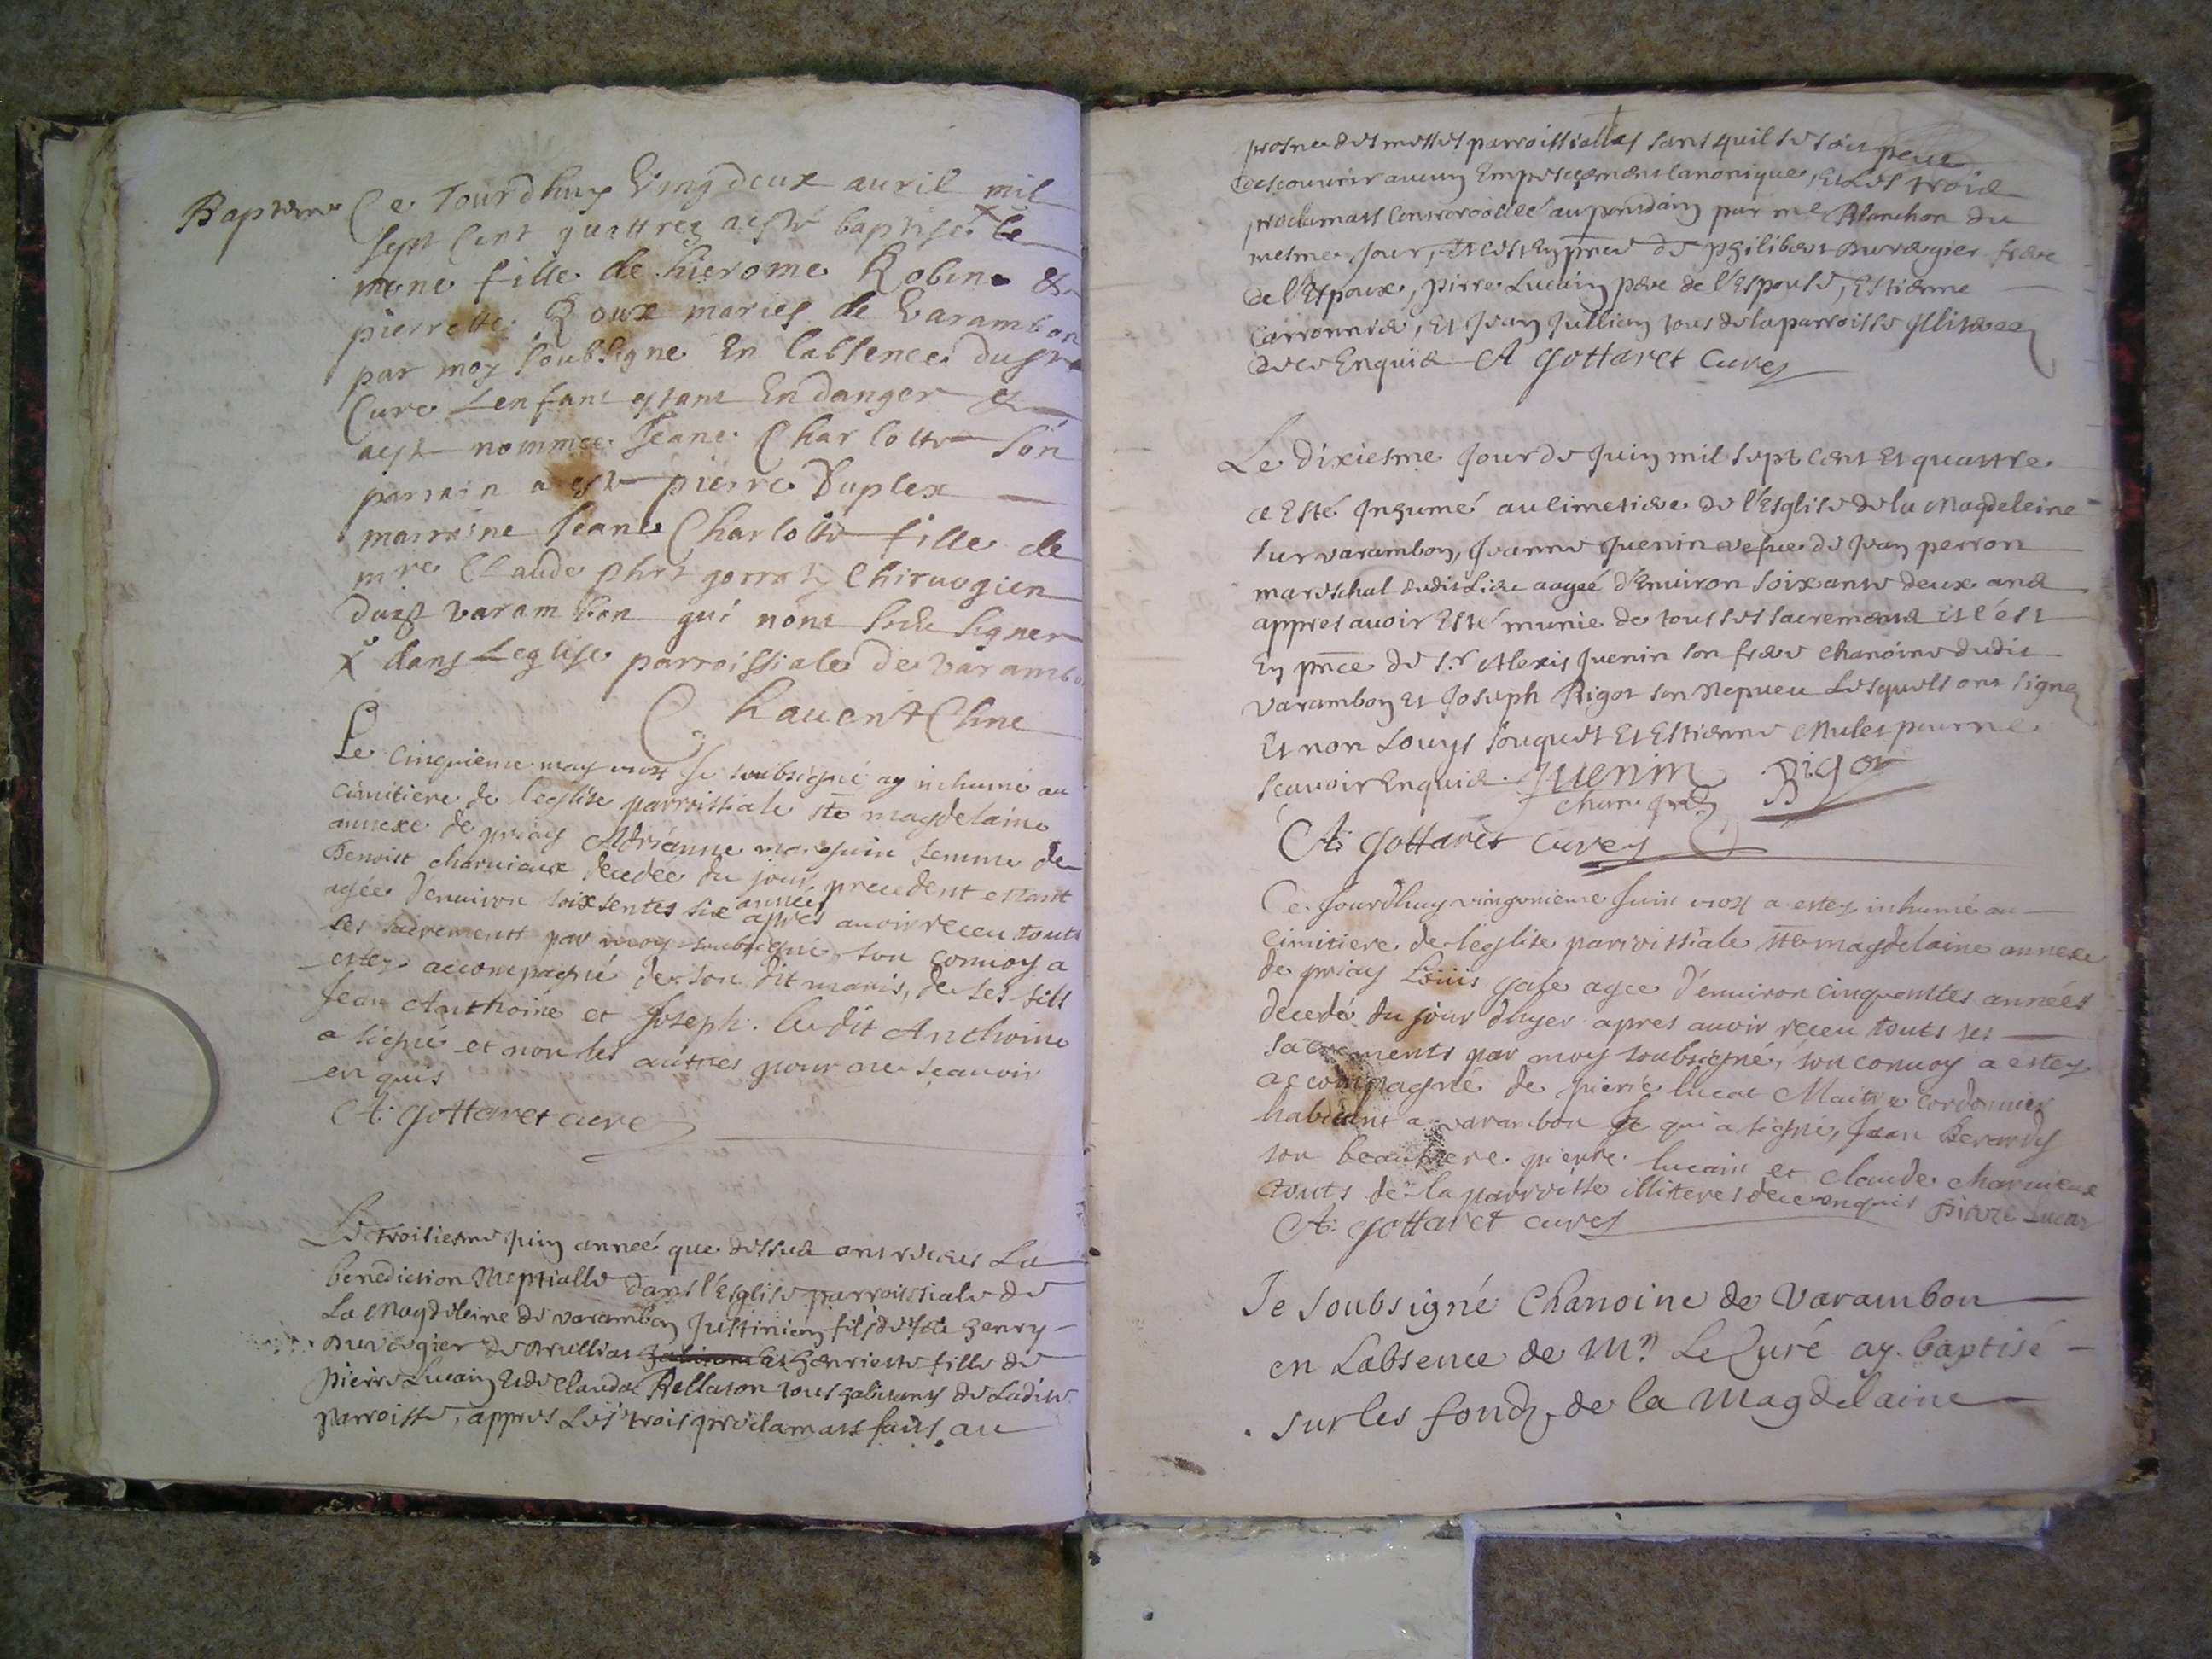 Bapteme Ce Jourdhuy Vingdeux auril mil
sept Cent quattres aesté baptisée le
mene fille de hierome Robin &
pierrette Roux maries de Varambon
par moy soubsigne En labsence du sr
Cure Lenfant estant En danger &
aeste nommee Jeane Charlotte Son
parrain a este pierre Duplex
marraine Jeane Charlotte fille de
mre Claude Chirurgien
dudt varambon qui nont sceu signer
x dans Leglise parroissiale de Varambo
Chauent Chne
Le cinquieme may 1704 Je soubsigné ay inhumé au
cimitiere de leglise parroissiale ste magdelaine
annexe de priay Adrianne marguin femme de
Benoist charuieux decedée du jour precedent estant
agée d'enuiron soixsentes six années apres auoir receu touts
ses sacrements par moy soubsigné, son conuoy a
estey accompagné de son dit maris, de ses fils
Jean Anthoine et Joseph. ledit Anthoine
a signé et non les autres pour ne scauoir
enquis
A: Gottaret cure
Le troisiesme juin anneé que dessus ont receus La
benediction Neptialle dans l'Esglise parroissiale de
La Magdeleine de varambon Justinien fils de feu henry
Duvergier de Druillias et henrieste fille de
pierre Lucain et de Claudas Pellason tous habitants de Ladite
parroisse, appres Les trois proclamats faits au
prosnes des messes parroissialles sans quil se soit peut
descouurir aucun Empeschement Canonique, et Les trois
proclamats Controroollé au pontdain par me Planchon du
mesme jour, et ce en pnce de philibert Duvergier frere
de l'Espoux, pierre Lucain pere de l'Espouse, Estienne
Carronnier, Et Jean Jullian tous de la parroisse Illiteres
de ce Enquis A Gottaret Curez
Le dixiesme jour de Juin mil sept cent Et quattre
a Esté Inhumé au Cimetiere de l'Esglise de la Magdeleine
sur varambon, Jeanne Juenin vefue de Jean perron
mareschal dudit Lieu aagée d'Enuiron soixante deux ans
appres auoir Esté munie de tous ses sacrements et c'est
En pnce de sr Alexis Juenin son frere chanoine dudit
varambon et Joseph Rigot son Nepueu Lesquels ont signé
Et non Louys fouquet Et Estienne Mulet pour ne
scauoir Enquis. Juenin Rigot
chan.
A: Gottaret Curey
Ce Jourdhuy vingunieme Juin 1704 a estey inhumé au
cimitiere de leglise parroissiale ste magdelaine annexe
de priay Louis gale agee d'enuiron cinquantes années
decedé du jour d'hyer apres auoir receu touts ses
sacrements par moy soubsigné, son conuoy a estey
accompagné de pierre lucat Maitre Cordonnier
habitant a varambon qui a signé, Jean Berardy
son beaufrere. pierre lucain et claude charuieux
touts de la parroisse illiteres de ce enquis Pierre Lucat
A: Gottaret curey
Je soubsigné Chanoine de Varambon
en Labsence de Mr Le Curé ay baptisé
sur les fonds de la Magdelaine